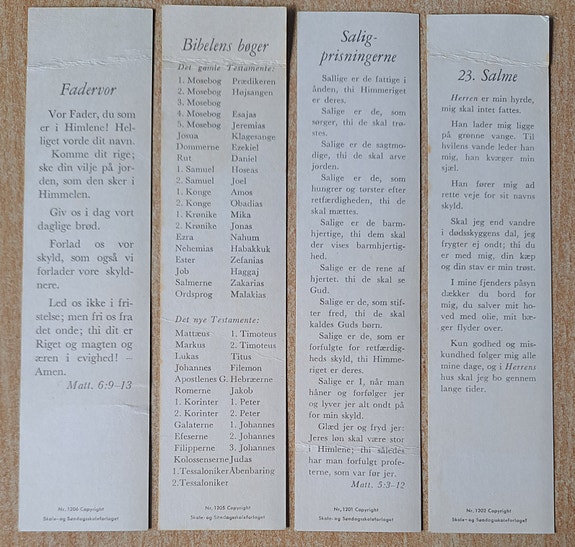 Fadervor
Vor Fader, du som
er i Himlene! Hel-
liget vorde dit navn.
Komme dit rige;
ske din vilje på jor-
den, som den sker i
Himmelen.
Giv os i dag vort
daglige brød.
Forlad os vor
skyld, som også vi
forlader vore skyld-
nere.
Led os ikke i fri-
stelse; men fri os fra
det onde; thi dit er
Riget og magten og
æren i evighed! –
Amen.
Matt. 6:9–13
Nr. 1206 Copyright
Skole- og Søndagsskoleforlaget
Bibelens bøger
Det gamle Testamente:
1. Mosebog Prædikeren
2. Mosebog Højsangen
3. Mosebog
4. Mosebog Esajas
5. Mosebog Jeremias
Josua Klagesange
Dommerne Ezekiel
Rut Daniel
1. Samuel Hoseas
2. Samuel Joel
1. Konge Amos
2. Konge Obadias
1. Krønike Mika
2. Krønike Jonas
Ezra Nahum
Nehemias Habakkuk
Ester Zefanias
Job Haggaj
Salmerne Zakarias
Ordsprog Malakias
Det nye Testamente:
Mattæus 1. Timoteus
Markus 2. Timoteus
Lukas Titus
Johannes Filemon
Apostlenes G. Hebræerne
Romerne Jakob
1. Korinter 1. Peter
2. Korinter 2. Peter
Galaterne 1. Johannes
Efeserne 2. Johannes
Filipperne 3. Johannes
Kolossenserne Judas
1. Tessaloniker Åbenbaring
2. Tessaloniker
Nr. 1205 Copyright
Skole- og Søndagsskoleforlaget
Salig-
prisningerne
Sallige er de fattige i
ånden, thi Himmeriget
er deres.
Salige er de, som
sørger, thi de skal trø-
stes.
Salige er de sagtmo-
dige, thi de skal arve
jorden.
Salige er de, som
hungrer og tørster efter
retfærdigheden, thi de
skal mættes.
Salige er de barm-
hjertige, thi dem skal
der vises barmhjertig-
hed.
Salige er de rene af
hjertet. thi de skal se
Gud.
Salige er de, som stif-
ter fred, thi de skal
kaldes Guds børn.
Salige er de, som er
forfulgte for retfærdig-
heds skyld, thi Himme-
riget er deres.
Salige er I, når man
håner og forfølger jer
og lyver jer alt ondt på
for min skyld.
Glæd jer og fryd jer:
Jeres løn skal være stor
i Himlene; thi således
har man forfulgt profe-
terne, som var før jer.
Matt. 5:3–12
Nr. 1201 Copyright
Skole- og Søndagsskoleforlaget
23. Salme
Herren er min hyrde,
mig skal intet fattes.
Han lader mig ligge
på grønne vange. Til
hvilens vande leder han
mig, han kvæger min
sjæl.
Han fører mig ad
rette veje for sit navns
skyld.
Skal jeg end vandre
i dødsskygens dal, jeg
frygter ej ondt; thi du
er med mig, din kæp
og din stav er min trøst.
I mine fjenders påsyn
dækker du bord for
mig, du salver mit ho-
ved med olie, mit bæ-
ger flyder over.
Kun godhed og mis-
kundhed følger mig alle
mine dage, og i Herrens
hus skal jeg bo gennem
lange tider.
Nr. 1202 Copyright
Skole- og Søndagsskoleforlaget